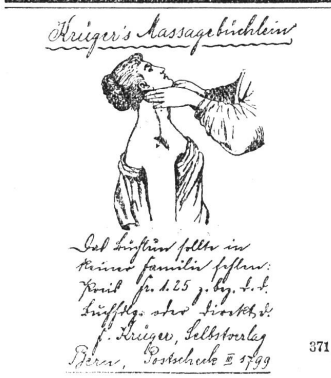 Krüger's Massagebüchlein
Das Büchlein sollte in
keiner Familie fehlen:
Preis fr. 1.25 z. bez. d. d.
Buchhdlg. oder direkt d.
F. Krüger, Selbstverlag
Bern, Postscheck III 1799
371